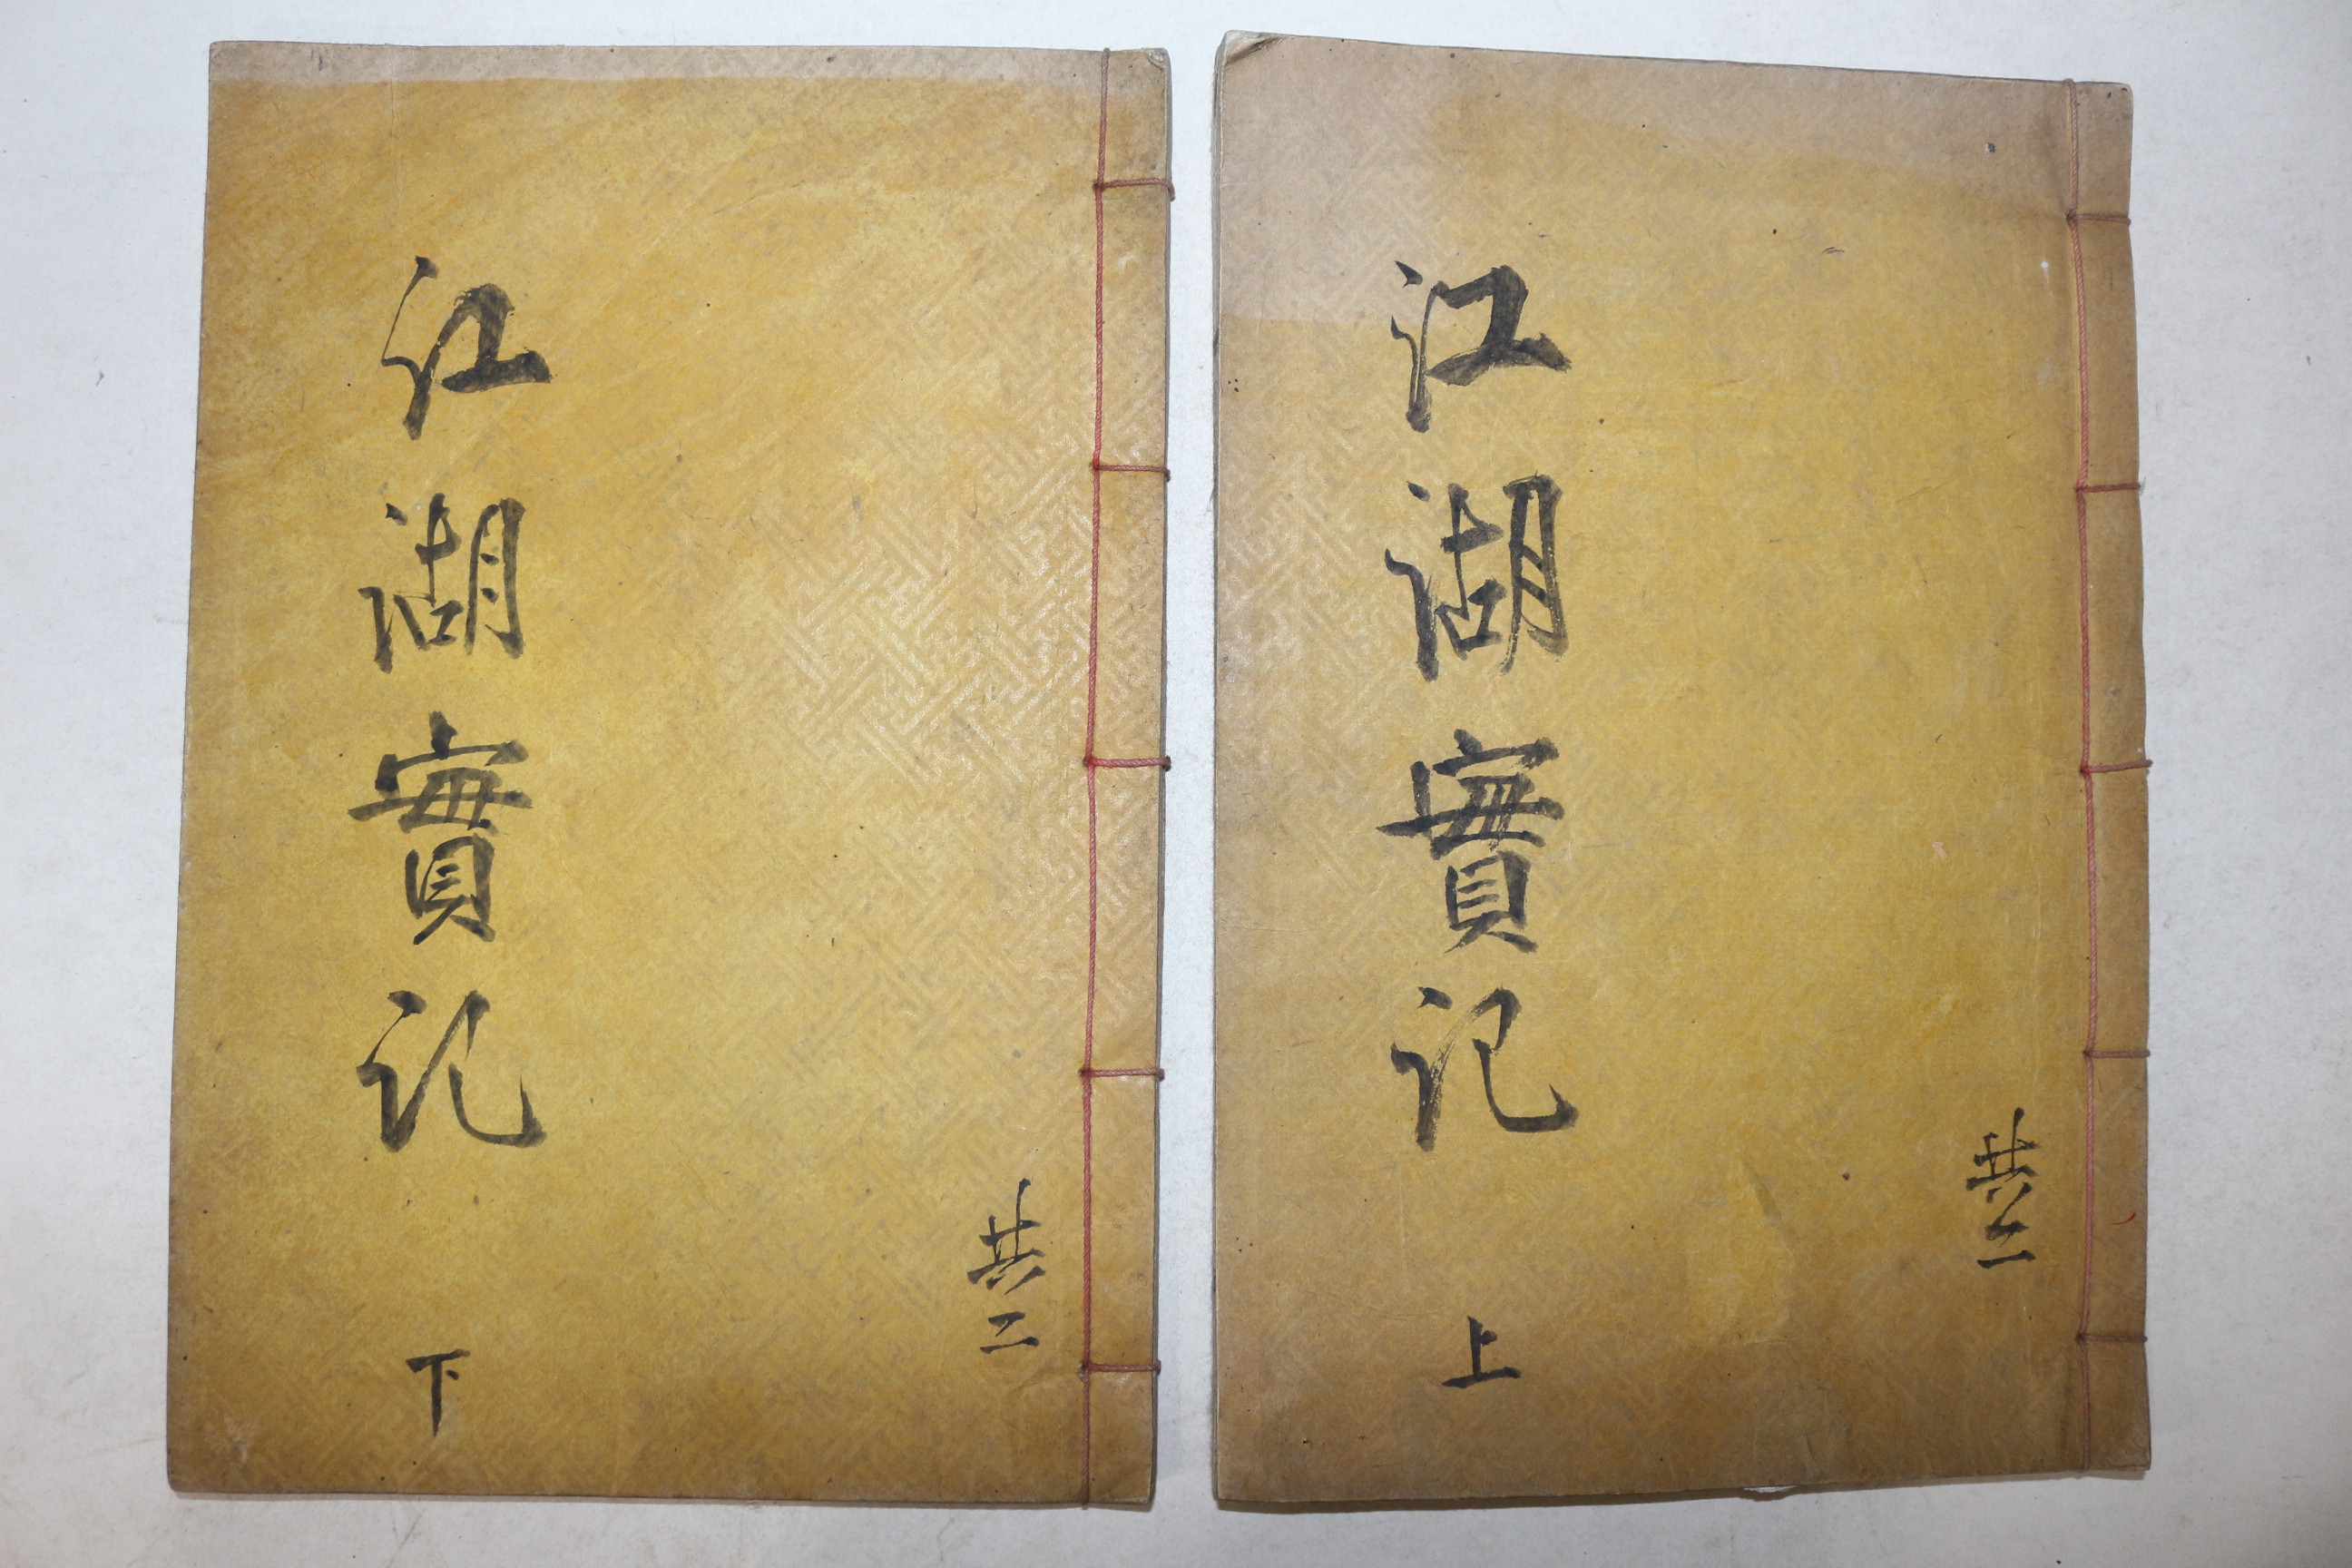 共二
江湖實记
上
共二
江湖實记
下